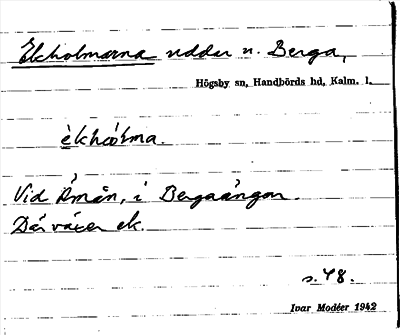 Ekholmarna uddar n. Berga,
Högsby sn, Handbörds hd, Kalm. l.
èkhólma.
Vid Åmån, i Bergaängar.
Där växer ek.
s. 48.
Ivar Modéer 1942